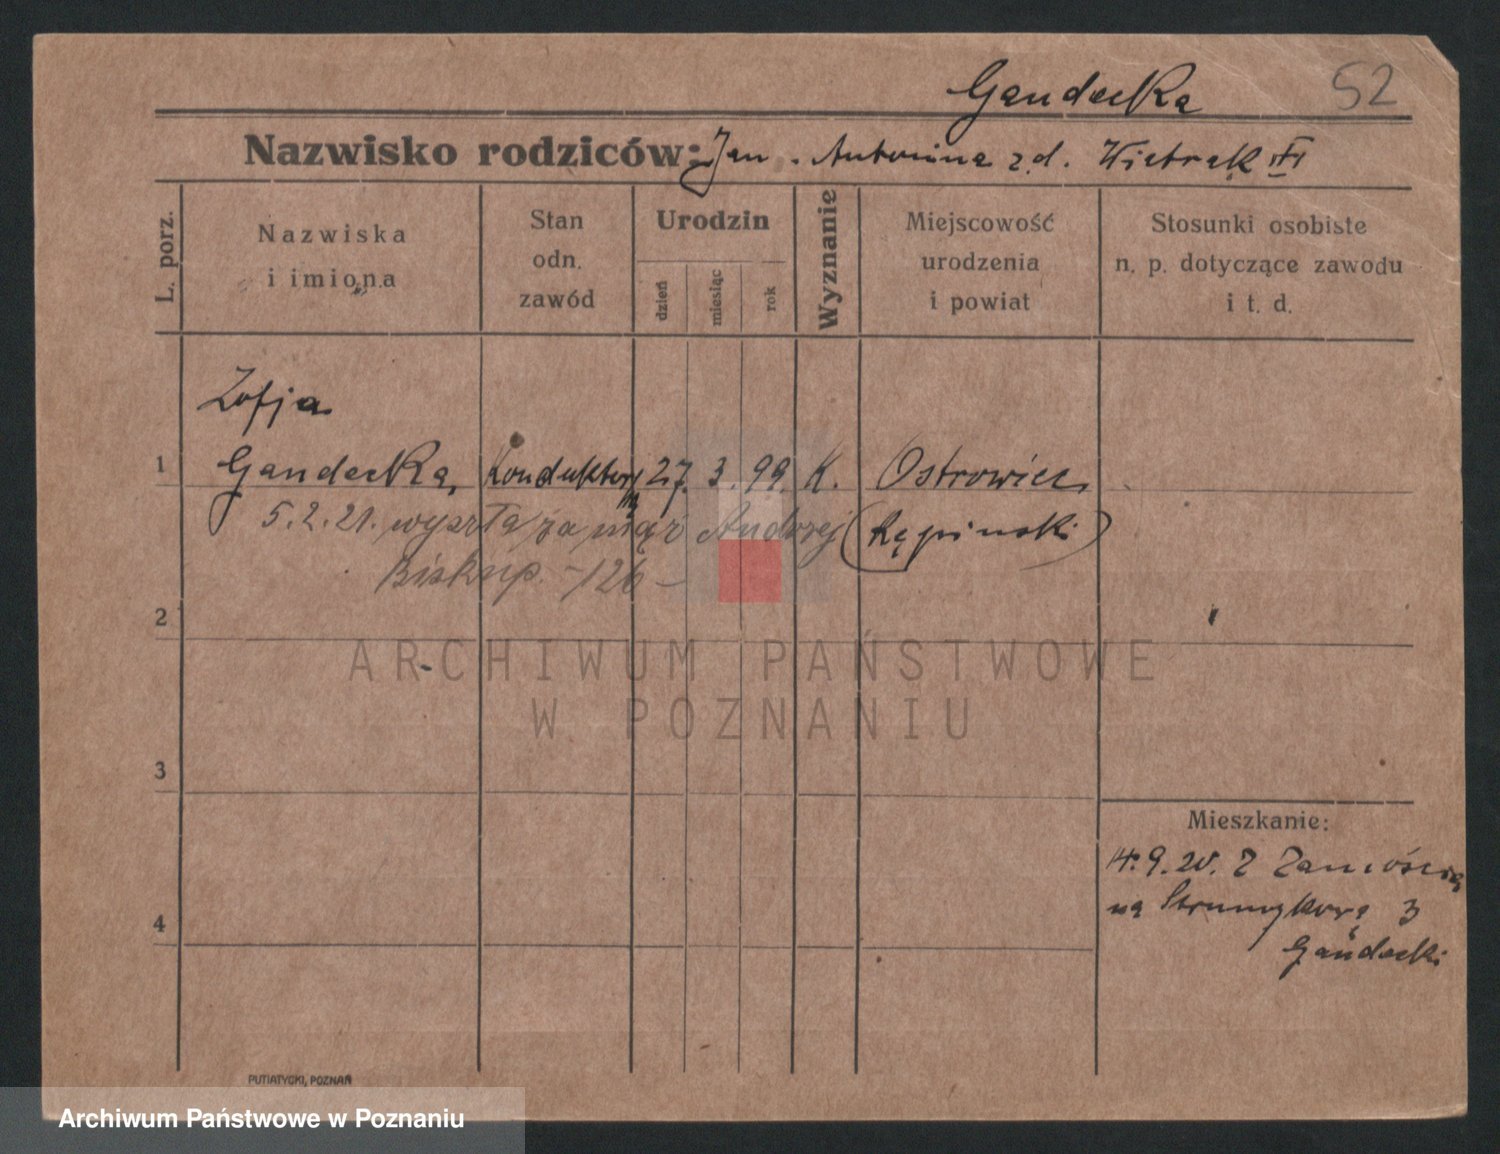 Gandecka 52
Nazwisko rodziców: Jan . Antonina z d. Wietrak
L. porz.
Nazwiska
i imiona
Stan
odn.
zawód
Urodzin
dzień
miesiąc
rok
Wyznanie
Miejscowość
urodzenia
i powiat
Stosunki osobiste
n. p. dotyczące zawodu
i t. d.
Zofja
1 Gandecka, Konduktorka 27. 3. 99. K. Ostrowiec
5.2.21. wyszła za mąż Andrzej (Kępinski)
Biskup. -126-
2
ARCHIWUM PAŃSTWOWE
W POZNANIU
3
Mieszkanie:
14.9.20. Z Zamościa
na Strumykową 3
4
Gandecki
PUTIATYCKI, POZNAŃ
Archiwum Państwowe w Poznaniu